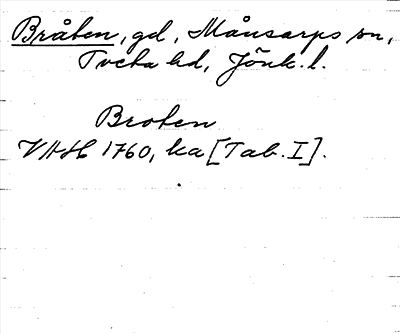 Bråten, gd, Månsarps sn,
Tveta hd, Jönk. l.
Broten
VAH 1760, ka [Tab. I].